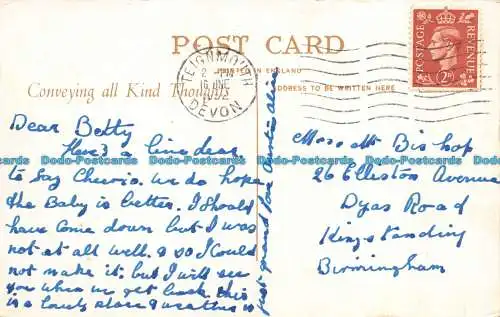 POST CARD
PRINTED IN ENGLAND
Conveying all Kind Thoughts
ADDRESS TO BE WRITTEN HERE
TEIGNMOUTH
DEVON
POSTAGE REVENUE
2D
Dear Betty
Here's a line dear
to say Cheerio. we do hope
the Baby is better. I should
have come down but I was
not at all well. & so I could
not make it. but I will see
you when we get back. this
is a lovely place & weather is
just grand love Auntie Alice
Bishop
26 Elleston Avenue
Dyas Road
Kingstanding
Birmingham
Dodo-Postcards Dodo-Postcards Dodo-Postcards Dodo-Postcards